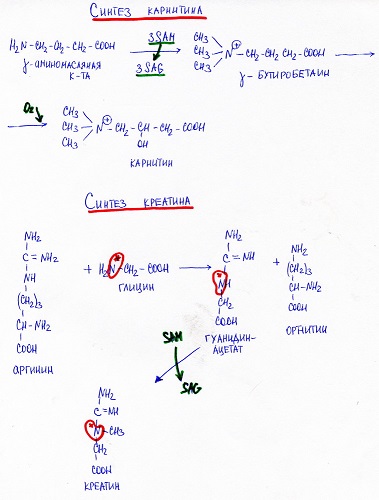 СИНТЕЗ КАРНИТИНА
H₂N-CH₂-CH₂-CH₂-COOH
3SAM
3SAG
γ-АМИНОМАСЛЯНАЯ
К-ТА
CH₃
CH₃
CH₃
N⊕-CH₂CH₂CH₂COOH
γ-БУТИРОБЕТАИН
O₂
CH₃
CH₃
CH₃
N⊕-CH₂-CH-CH₂-COOH
OH
КАРНИТИН
СИНТЕЗ КРЕАТИНА
NH₂
C=NH₂
NH
(CH₂)₃
CH-NH₂
COOH
АРГИНИН
+ H₂N*-CH₂-COOH
ГЛИЦИН
NH₂
C=NH
*NH
CH₂
COOH
ГУАНИДИН-
АЦЕТАТ
+
NH₂
(CH₂)₃
CH-NH₂
COOH
ОРНИТИН
SAM
SAG
NH₂
C=NH
*N-CH₃
CH₂
COOH
КРЕАТИН